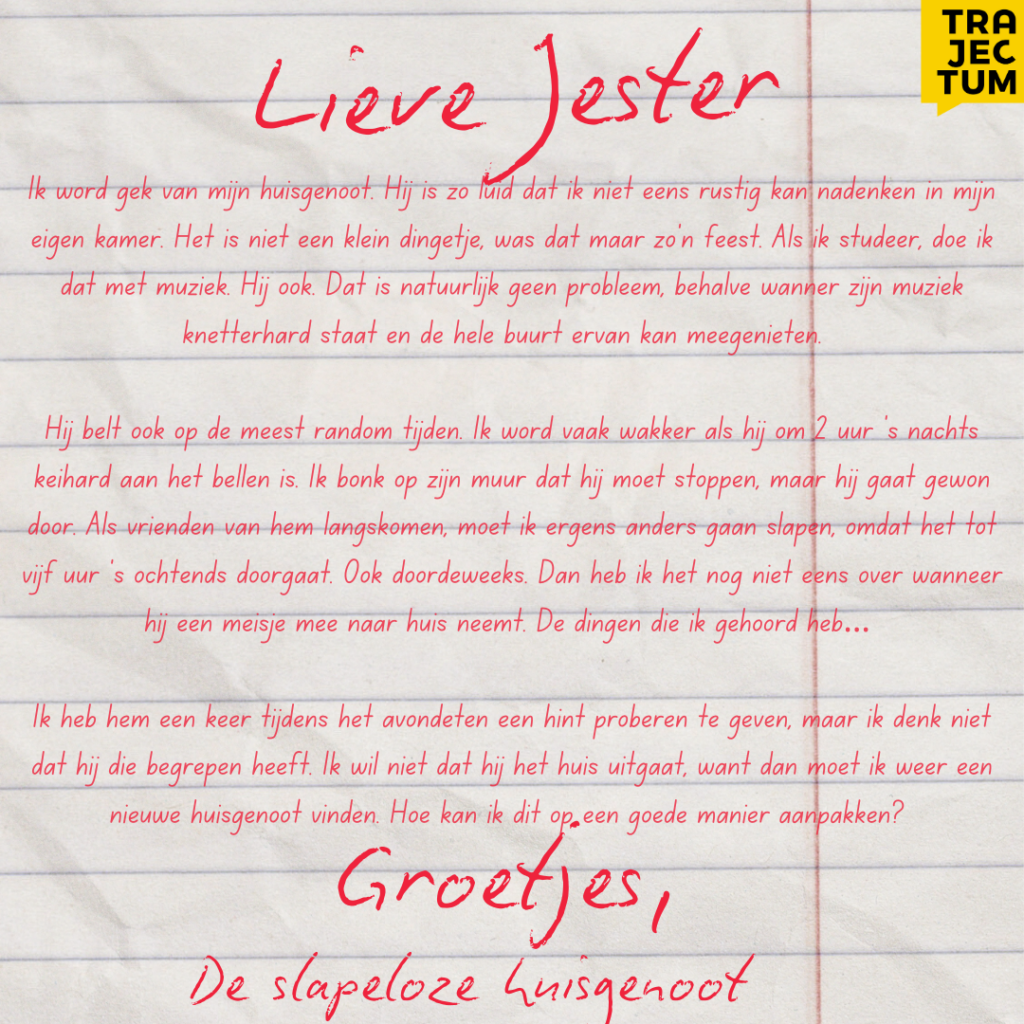 TRA
JEC
TUM
Lieve Jester
Ik word gek van mijn huisgenoot. Hij is zo luid dat ik niet eens rustig kan nadenken in mijn
eigen kamer. Het is niet een klein dingetje, was dat maar zo'n feest. Als ik studeer, doe ik
dat met muziek. Hij ook. Dat is natuurlijk geen probleem, behalve wanner zijn muziek
knetterhard staat en de hele buurt ervan kan meegenieten.
Hij belt ook op de meest random tijden. Ik word vaak wakker als hij om 2 uur 's nachts
keihard aan het bellen is. Ik bonk op zijn muur dat hij moet stoppen, maar hij gaat gewon
door. Als vrienden van hem langskomen, moet ik ergens anders gaan slapen, omdat het tot
vijf uur 's ochtends doorgaat. Ook doordeweeks. Dan heb ik het nog niet eens over wanneer
hij een meisje mee naar huis neemt. De dingen die ik gehoord heb...
Ik heb hem een keer tijdens het avondeten een hint proberen te geven, maar ik denk niet
dat hij die begrepen heeft. Ik wil niet dat hij het huis uitgaat, want dan moet ik weer een
nieuwe huisgenoot vinden. Hoe kan ik dit op een goede manier aanpakken?
Groetjes,
De slapeloze huisgenoot